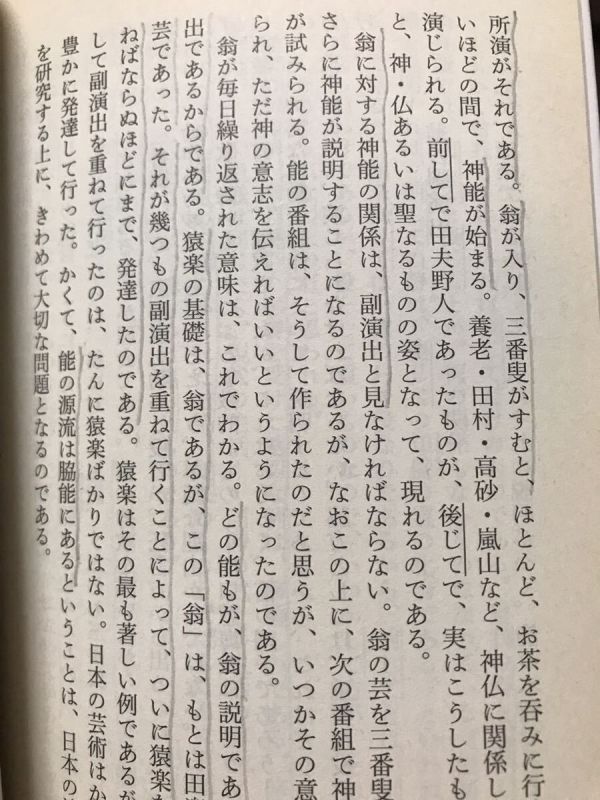 所演がそれである。翁が入り、三番叟がすむと、ほとんど、お茶を呑みに行
いほどの間で、神能が始まる。養老・田村・高砂・嵐山など、神仏に関係し
演じられる。前してで田夫野人であったものが、後じてで、実はこうしたも
と、神・仏あるいは聖なるものの姿となって、現れるのである。
翁に対する神能の関係は、副演出と見なければならない。翁の芸を三番叟
さらに神能が説明することになるのであるが、なおこの上に、次の番組で神
が試みられる。能の番組は、そうして作られたのだと思うが、いつかその意
られ、ただ神の意志を伝えればいいというようになったのである。
翁が毎日繰り返された意味は、これでわかる。どの能もが、翁の説明であ
出であるからである。猿楽の基礎は、翁であるが、この「翁」は、もとは田
芸であった。それが幾つもの副演出を重ねて行くことによって、ついに猿楽
ねばならぬほどにまで、発達したのである。猿楽はその最も著しい例であるが
して副演出を重ねて行ったのは、たんに猿楽ばかりではない。日本の芸術はか
豊かに発達して行った。かくて、能の源流は脇能にあるということは、日本の
を研究する上に、きわめて大切な問題となるのである。